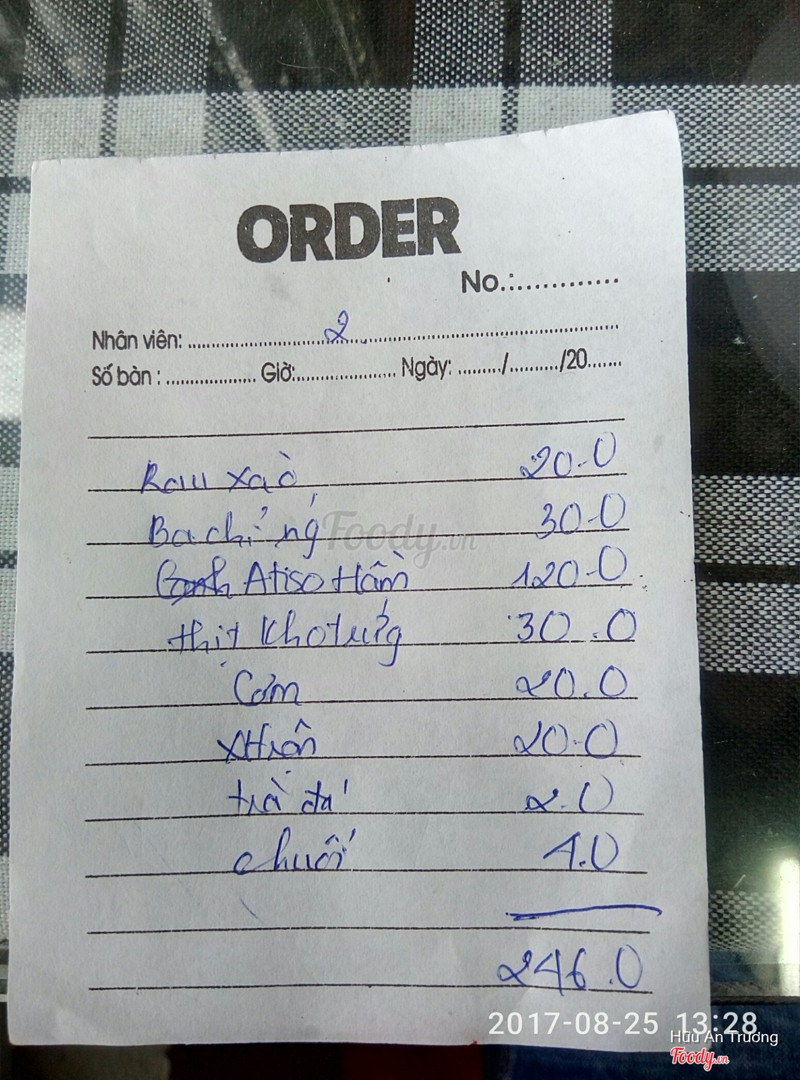 ORDER
No.:............
Nhân viên: ..............2..............
Số bàn : ............ Giờ:............ Ngày: ......../........../20.......
Rau xào 20.0
Ba chỉ 30.0
Atiso Hầm 120.0
thịt kho trứng 30.0
Cơm 20.0
20.0
trà đá 2.0
chuối 4.0
246.0
Foody.vn
2017-08-25 13:28
Hữu An Trương
Foody.vn